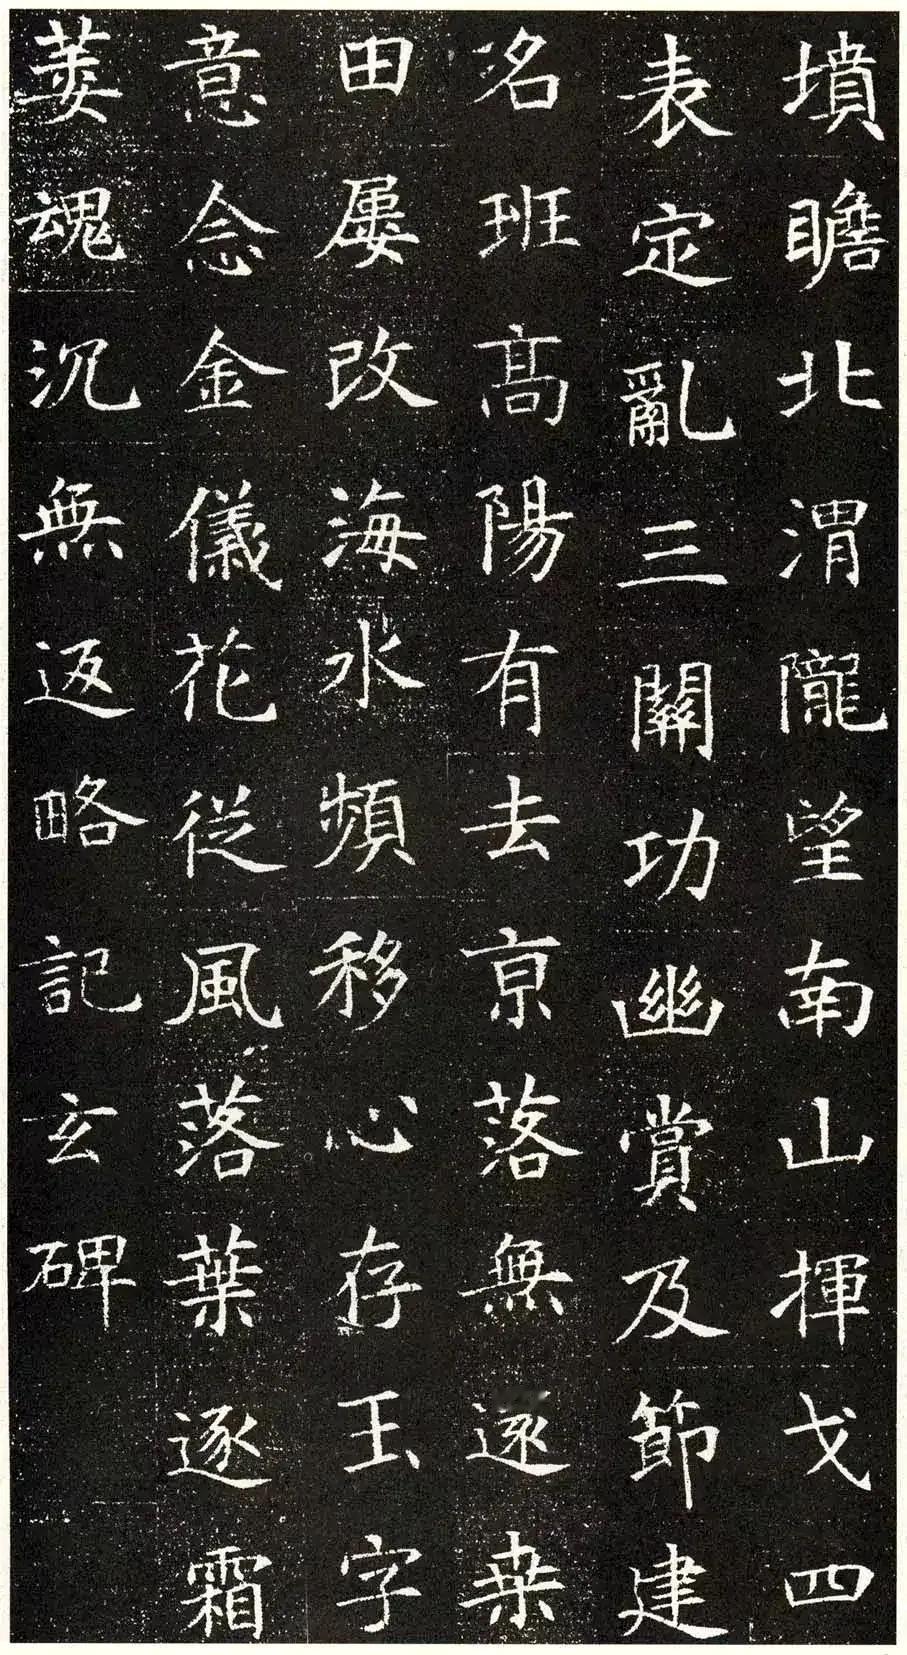 墳瞻北渭隴望南山揮戈四
表定亂三關功幽賞及節建
名班高陽有去京落無逐桒
田屢改海水頻移心存玉字
意念金儀花從風落葉逐霜
萎魂沉無返略記玄碑